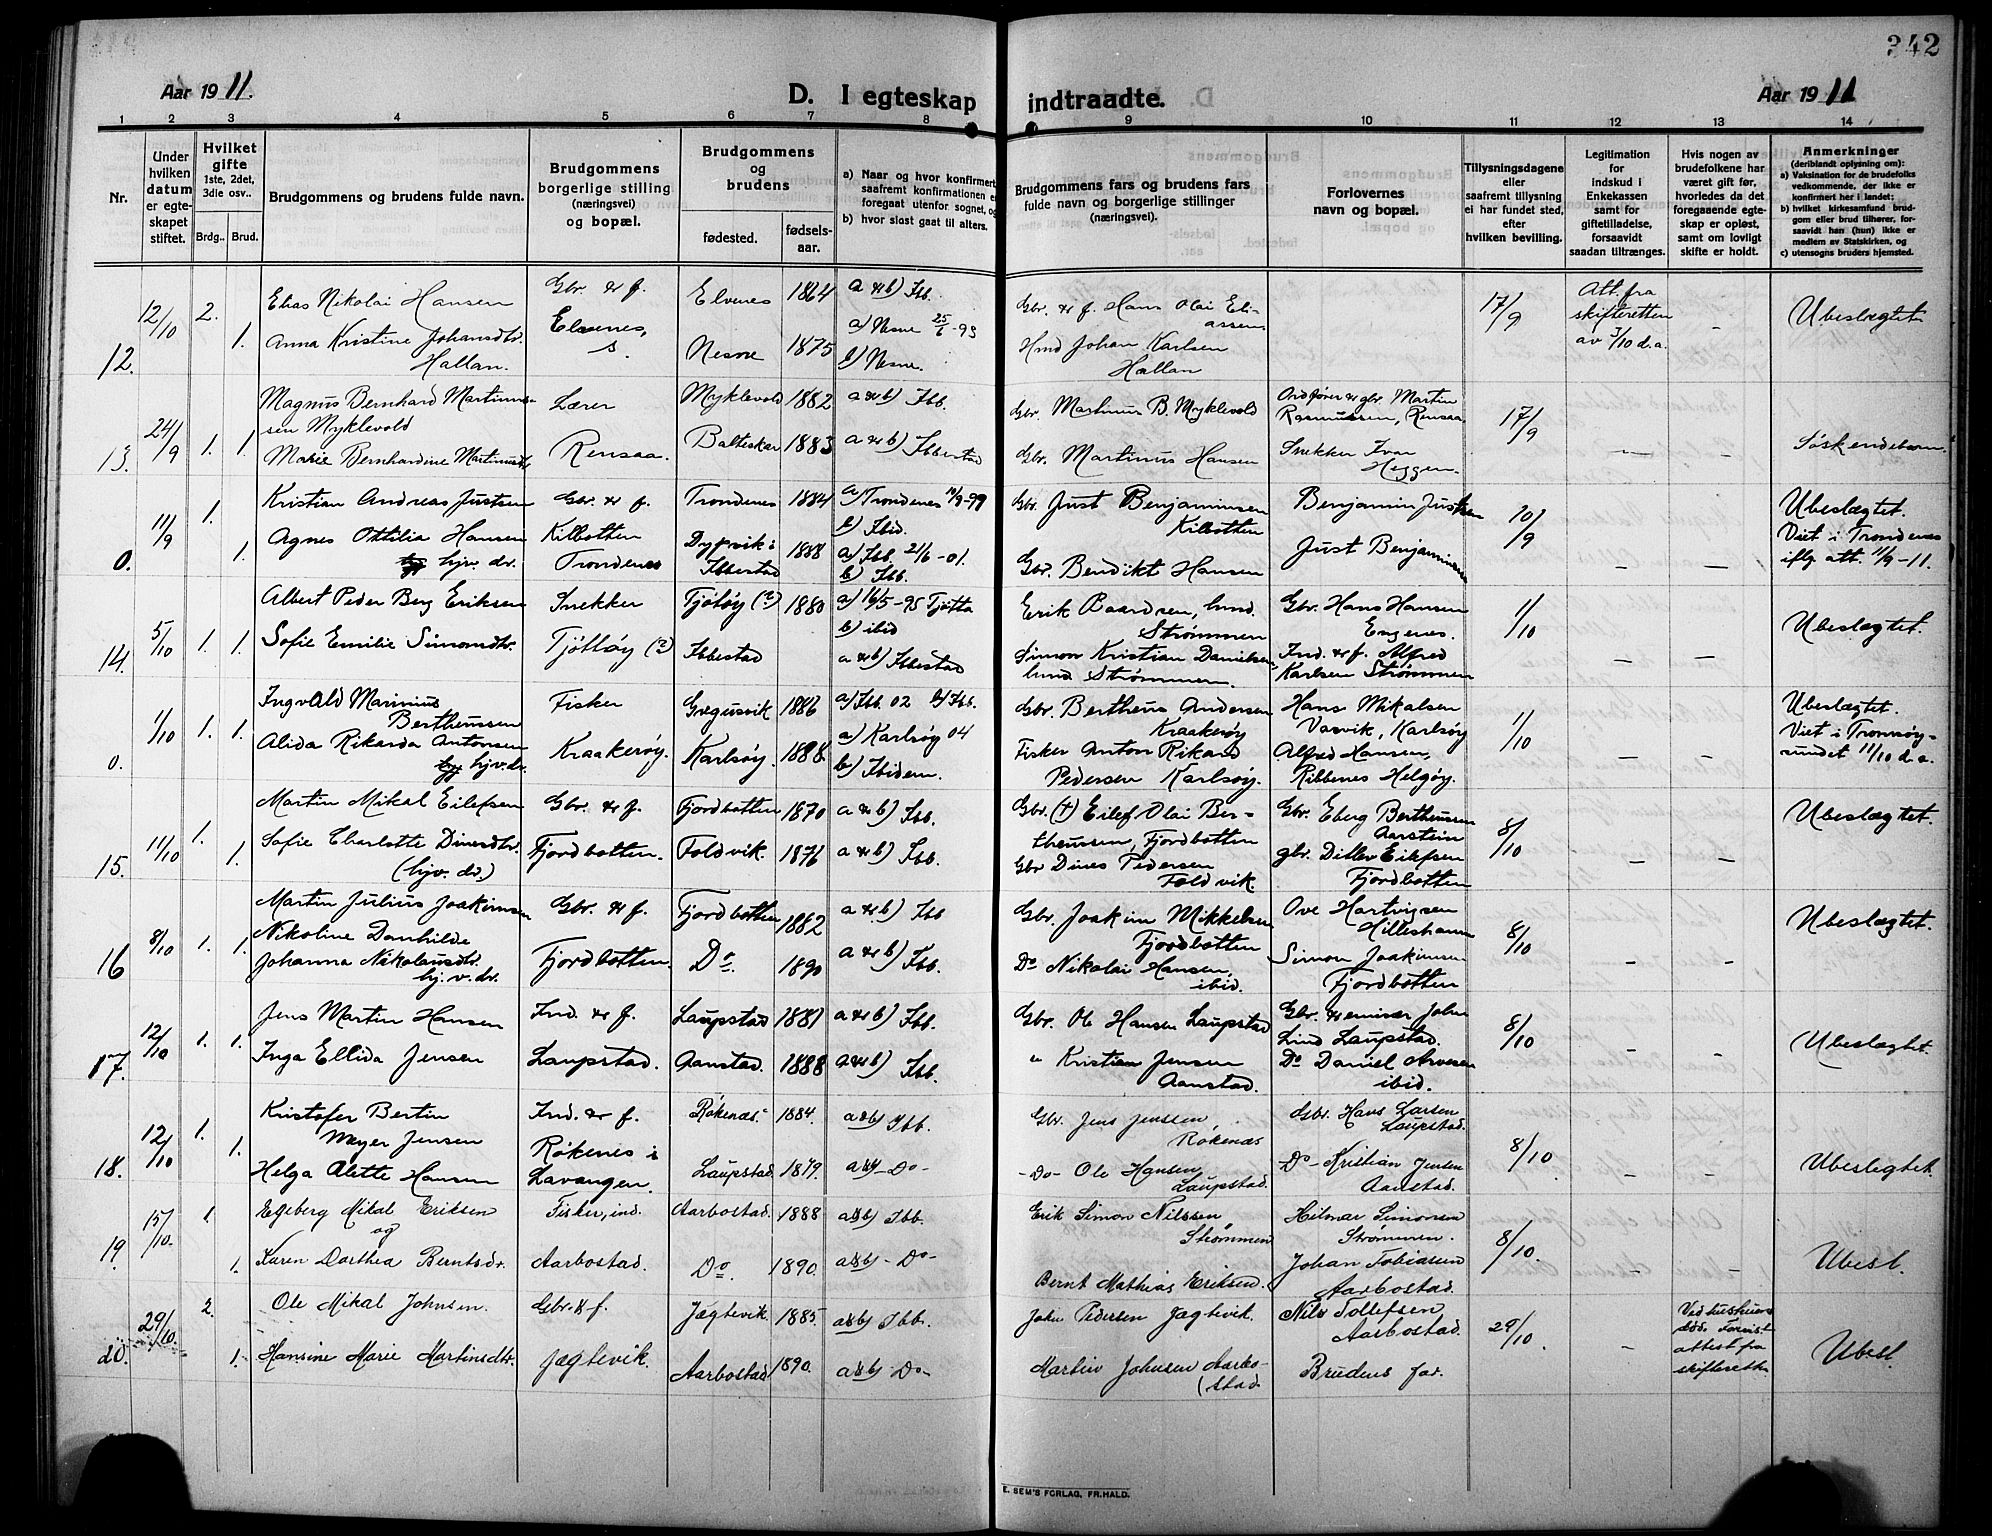 342
Aar 1911.
D. I egteskap indtraadte.
Aar 1911
1 2 3 4 5 6 7 8 9 10 11 12 13 14
Nr.
Under hvilken datum er egteskapet stiftet.
Hvilket gifte 1ste, 2det, 3die osv..
Brdg.. Brud.
Brudgommens og brudens fulde navn.
Brudgommens borgerlige stilling (næringsvei) og bopæl.
Brudgommens og brudens
fødested. fødsels- aar.
a) Naar og hvor konfirmert, saafremt konfirmationen er foregaat utenfor sognet, og
b) hvor sidst gaat til alters.
Brudgommens fars og brudens fars fulde navn og borgerlige stillinger (næringsvei).
Forlovernes navn og bopæl.
Tillysningsdagene eller saafremt tillysning ei har fundet sted, efter hvilken bevilling.
Legitimation for indskud i Enkekassen samt for giftetilladelse, forsaavidt saadan tiltrænges.
Hvis nogen av brudefolkene har været gift før, hvorledes da det foregaaende egteskap er opløst, samt om lovligt skifte er holdt.
Anmerkninger (deriblandt oplysning om):
a) Vaksination for de brudefolks vedkommende, der ikke er konfirmert her i landet;
b) hvilket kirkesamfund brudgom eller brud tilhører, forsaavidt han (hun) ikke er medlem av Statskirken, og
c) utensogns bruders hjemsted.
12. 12/10 2. Elias Nikolai Hansen Gbr. & f. Elvenes, Elvenes 1864 a & b) Ibb. Gbr. & f. Hans Olai Eliassen 17/9 Att. fra skifteretten av 3/10 d.a. - Ubeslægtet
1. Anna Kristine Johansdtr. Hallan. Nesne 1875 a) Nesne 25/6-93 b) Nesne. Hmd Johan Karlsen Hallan
13. 24/9 1. Magnus Bernhard Martinussen Myklevold Lærer Rensaa. Myklevold 1882 a & b) Ibb. Gbr Martinus B. Myklevold Ordfører & gbr. Martin Rasmussen, Rensaa 17/9 - - Søskendebarn
1. Marie Bernhardine Martinusdtr Balteskar 1883 a & b) Ibbestad Gbr. Martinus Hansen Snekker Ivar Heggen.
0. 11/9 1. Kristian Andreas Justsen Gbr. & f. Kilbotten Trondenes Trondenes 1884 a) Trondenes 10/9-99 b) Ibid. Gbr. Just Benjaminsen Kilbotten Benjamin Justsen 10/9 - - Ubeslægtet. Viet i Trondenes iflg. att. 11/9-11.
1. Agnes Ottilia Hansen hjv. dr. Dyrvik i Ibbestad 1888 a) Ibb. 21/6-01. b) Ibb. Gbr. Bendikt Hansen Just Benjaminsen
14. 5/10 1. Albert Peder Berg Eriksen Snekker Tjöttöy (?) Tjötöy (?) 1880 a) 16/5-95 Tjøtta b) ibid Erik Baardsen, hmd. Strømmen Gbr. Hans Hansen Engenes. 1/10 - - Ubeslægtet.
1. Sofie Emilie Simonsdtr. Ibbestad a & b) Ibbestad Simon Kristian Danielsen, hmd Strømmen. Ind. & f. Alfred Karlsen Strømmen
0. 1/10 1. Ingvald Marinius Bertheussen Fisker Kraakerøy. Gregusvik 1886 a) Ibb. 02 b) Ibb. Gbr. Bertheus Andersen Kraakerøy Hans Mikalsen Vasvik, Karlsöy 1/10 - - Ubeslægtet. Viet i Tromsøysundet 11/10 d.a.
1. Alida Rikarda Antonsen hjv. dr. Karlsöy. 1888 a) Karlsöy 04 b) Ibidem. Fisker Anton Rikard Pedersen Karlsöy. Alfred Hansen, Ribbenes Helgøy.
15. 11/10 1. Martin Mikal Eilefsen Gbr. & f. Fjordbotten. Fjordbotten 1870 a & b) Ibb. Gbr. (+) Eilef Olai Bertheussen, Fjordbotten Gbr. Eberg Bertheussen Aarstein 8/10 - - Ubeslægtet.
1. Sofie Charlotte Dinesdtr. (hjv. dr.) Foldvik. 1876 a & b) Ibb. Gbr Dines Pedersen Foldvik. gbr. Ditlev Eilefsen Fjordbotten
16 8/10 1. Martin Julius Joakimsen Gbr. & f. Fjordbotten. Fjordbotten 1862 a & b) Ibb Gbr. Joakim Mikkelsen Fjordbotten Ove Hartvigsen Hilleshamn 8/10 - - Ubeslægtet.
1. Nikoline Danhilde Johanna Nikolaisdtr. hj. v. dr. Do. 1890 a & b) Ibb. Do Nikolai Hansen, ibid. Simon Joakimsen Fjordbotten
17. 12/10 1. Jens Martin Hansen Ind. & f. Laupstad. Laupstad 1881 a & b) Ibb. Gbr. Ole Hansen Laupstad Gbr. & emisær John Lind Laupstad. 8/10 - - Ubeslægtet.
1. Inga Ellida Jensen Aanstad. 1888 a & b) Ibb. " Kristian Jensen Aanstad. Do Daniel Arvesen ibid.
18. 12/10 1. Kristofer Bertin Meyer Jensen Ind. & f. Røkenes i Lavangen. Røkenæs 1884. a & b) Ibb. Gbr. Jens Jenssen Røkenæs Gbr. Hans Larsen Laupstad. 8/10. - - Ubeslegtet.
1. Helga Alette Hansen Laupstad. 1879. a & b - Do - - Do - Ole Hansen Laupstad. Do - Kristian Jensen Aanstad.
19. 15/10. 1. Egeberg Mikal Eriksen og Fisker, ind. Aarbostad. Aarbostad. 1888 a & b) Ibb. Erik Simon Nilssen, Strømmen Hilmar Simonsen Strømmen. 8/10. - - Ubesl.
1. Karen Dorthea Berntsdr. Do. 1890. a & b - Do - Bernt Mathias Eriksen. Johan Tobiasen Aarbostad.
20. 29/10. 2. Ole Mikal Johnsen. Gbr. & f. Jægtevik. Jægtevik. 1885. a & b) Ibb. John Pedersen Jægtevik. Nils Tollefsen Aarbostad. 29/10. - attest fra skifteretten Ubesl.
1. Hansine Marie Martinsdtr. Aarbostad 1890. a & b) Do - Martin Johnsen Aarbostad. Brudens far.
E. SEM'S FORLAG, FR.HALD.